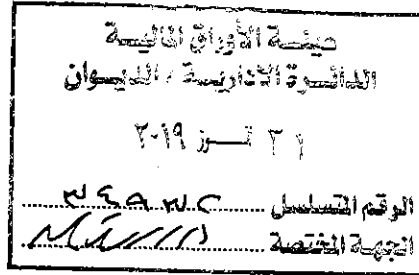 هيئة الأوراق المالية
الدائرة الادارية / الديوان
٣١ تموز ٢٠١٩
الرقم المتسلسل
الجهة المختصة